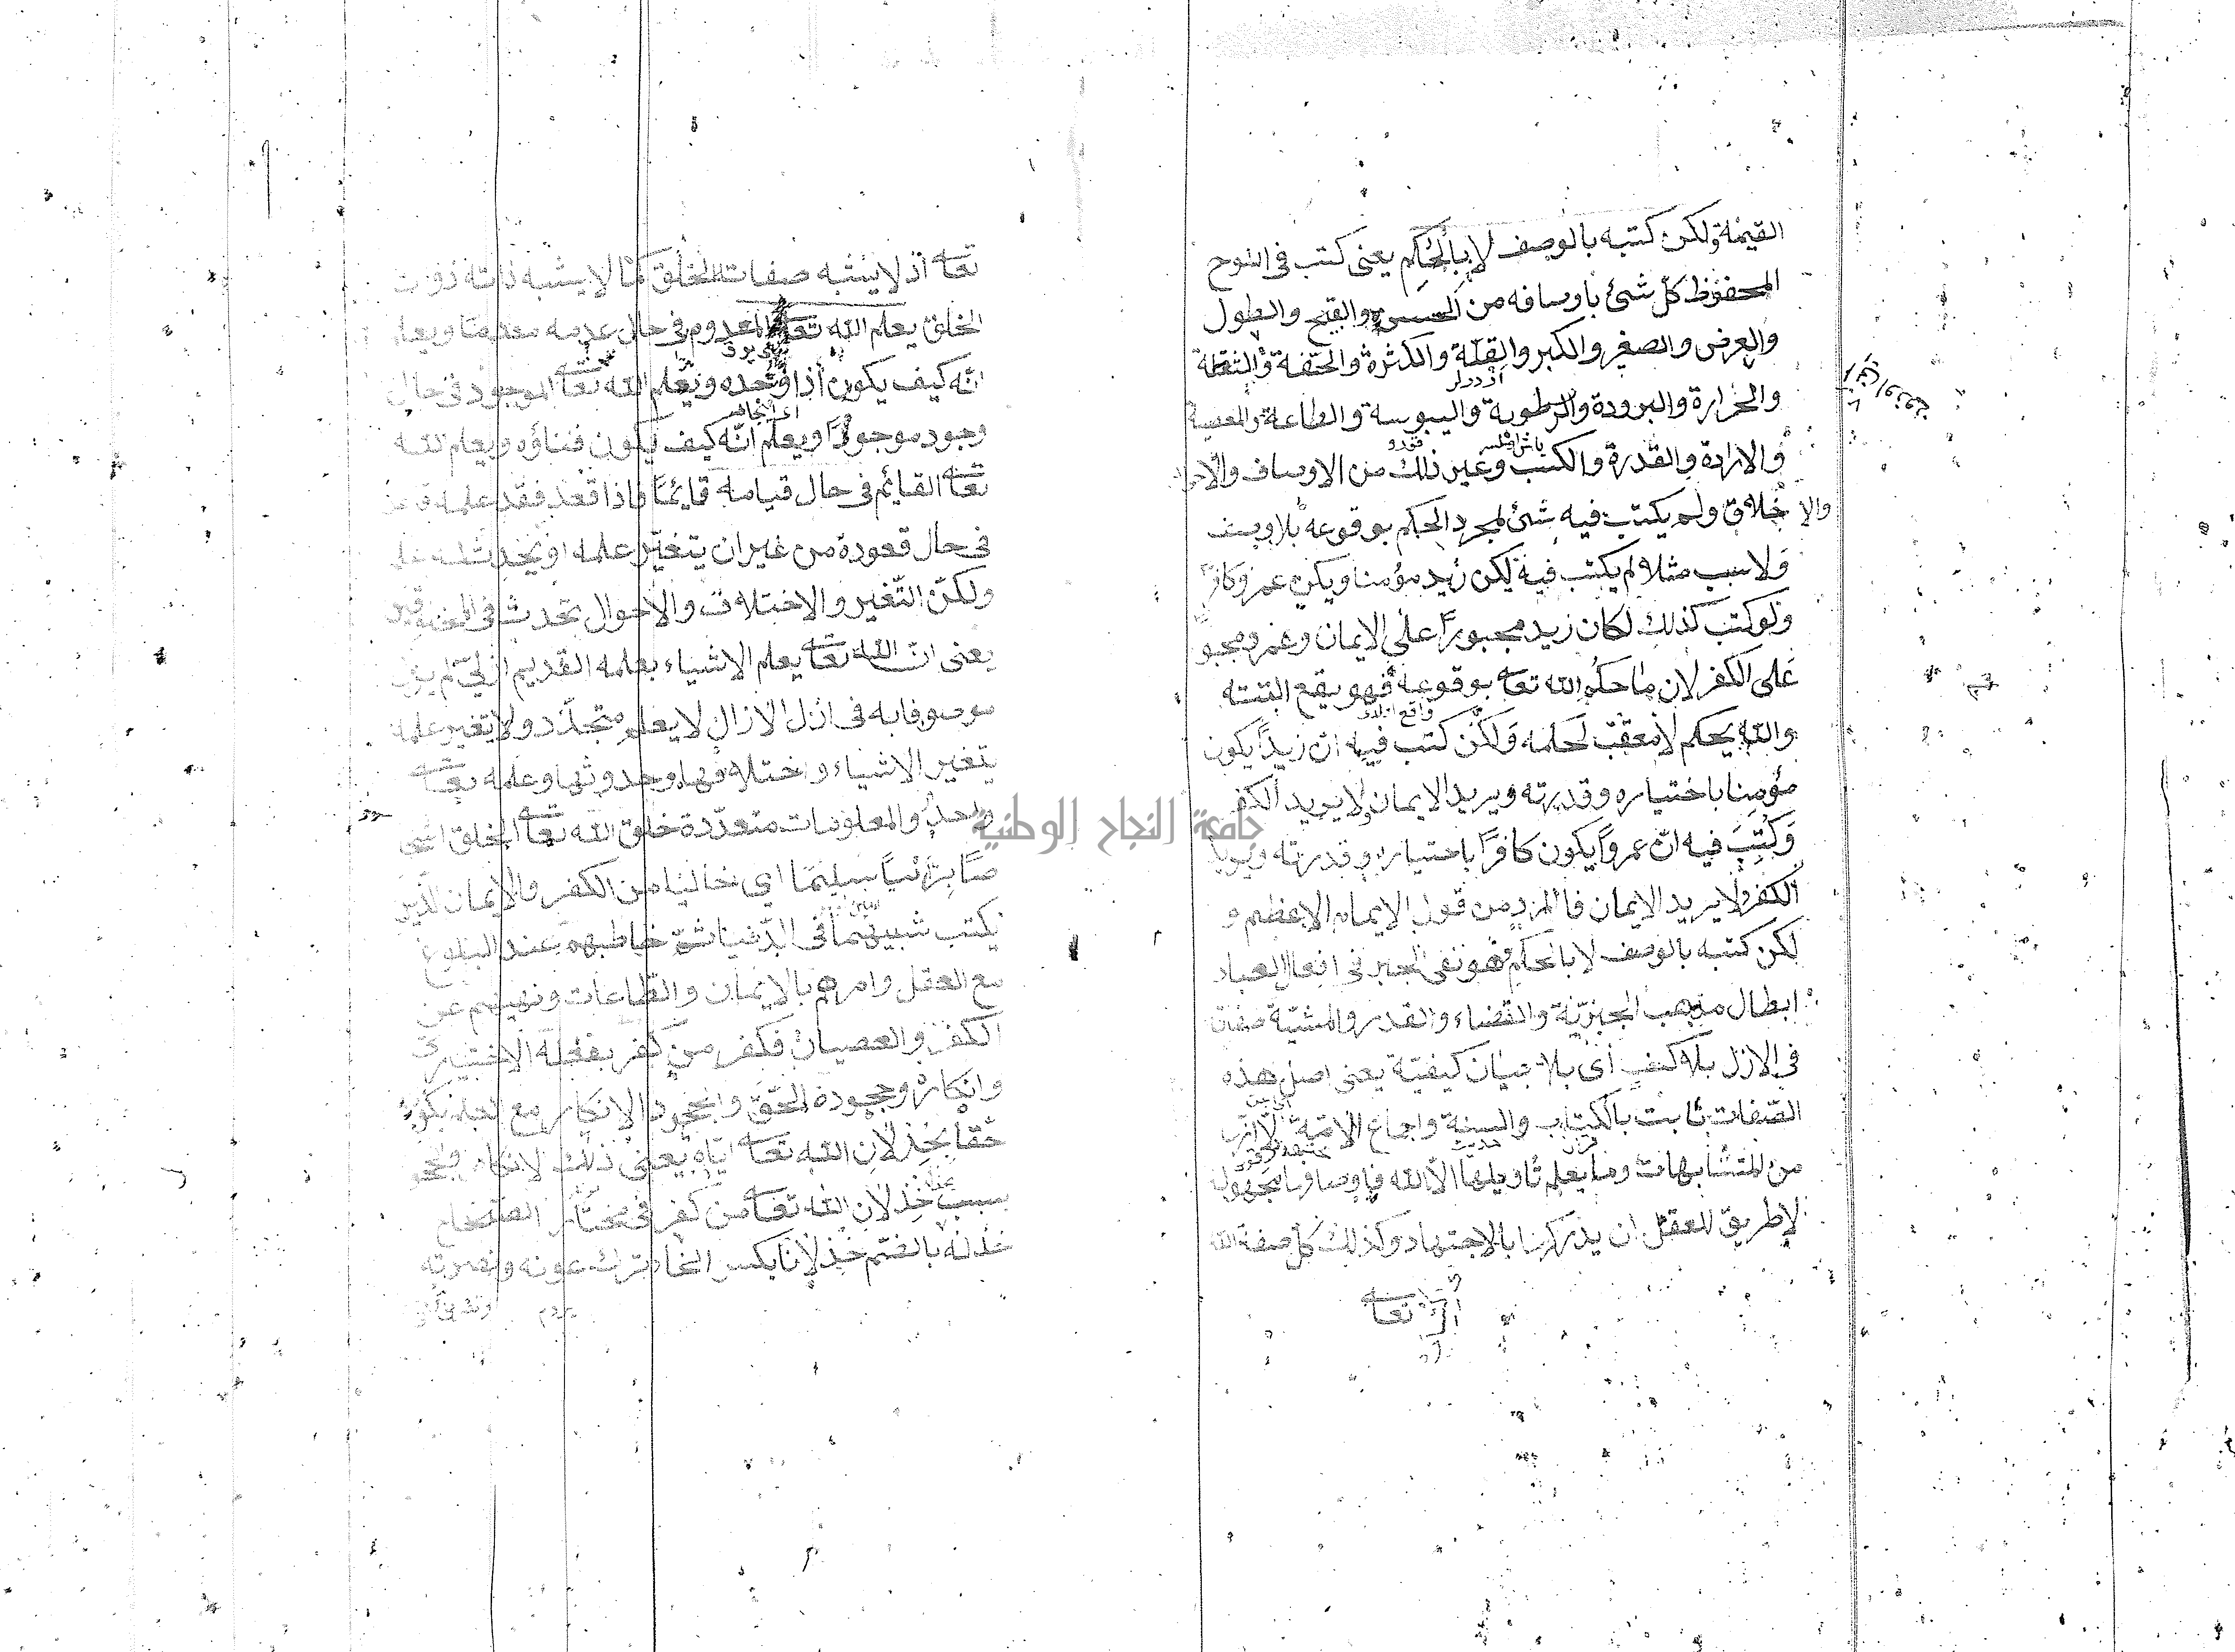 القيمة ولكن كتبه بالوصف لا بالحكم يعنى كتب فى اللوح
المحفوظ كل شئ باوصافه من الحسن والقبح والطول
والعرض والصغير والكبر والقلة والكثرة والخفة والثقلة
والحرارة والبرودة والرطوبة واليبوسة والطاعة والمعصية
والارادة والقدرة والكسب وغير ذلك من الاوصاف والاحوال
والاخلاق ولم يكتب فيه شئ لمجرد الحكم بوقوعه بلا وصف
ولا سبب مثلا لم يكتب فيه ليكن زيد مؤمنا ويكن عمرو كافرا
ولو كتب كذلك لكان زيد مجبورًا على الايمان وعمرو مجبو
على الكفر لان ما حكم الله تعا بوقوعه فهو يقع البتته
والله يحكم لا معقب لحكمه ولكن كتب فيه ان زيدًا يكون
مؤمنا باختياره وقدرته ويريد الايمان ولا يريد الكفر
وكُتِبَ فيه انّ عمروًا يكون كافرًا باختياره وقدرته ويريد
الكفر ولا يريد الايمان فالمراد من قول الامام الاعظم و
لكن كتبه بالوصف لا بالحكم هو نفى الجبر فى افعال العباد
ابطال مذهب الجبريّة والقضاء والقدر والمشيّة صفاته
فى الازل بلا كيف أى بلا بيان كيفيّة يعنى اصل هذه
الصّفات ثابت بالكتاب والسنة واجماع الامة الا انّها
من المتشابهات وما يعلم تاويلها الّا الله واوصافها مجهول
لا طريق للعقل ان يدركها بالاجتهاد وكذلك كلّ صفة الله
تعا
تعا اذ لا يشبه صفاته الخلق كما لا يشبه ذاته ذوات
الخلق يعلم الله تعا المعدوم فى حال عدمه معدومًا ويعلم
انّه كيف يكون اذا اوجده ويعلم الله تعا الموجود فى حال
وجوده موجودًا ويعلم انّه كيف يكون فناؤه ويعلم الله
تعا القائم فى حال قيامه قائمًا واذا قعد فقد علمه قاعدا
فى حال قعوده من غير ان يتغيّر علمه او يحدث له علم
ولكنّ التّغير والاختلاف والاحوال يحدث فى المخلوقين
يعنى انّ الله تعا يعلم الاشياء بعلمه القديم ازلىّ لم يزل
موصوفا به فى ازل الازال لا بعلم متجدّد ولا يتغير علمه
بتغير الاشياء واختلافها وحدوثها وعلمه تعا
واحد والمعلومات متعدّدة خلق الله تعا الخلق اى
سليمًا اى خاليا من الكفر والايمان الذين
يكتب شبيهما فى الدّنيا ثمّ خاطبهم عند البلوغ
مع العقل وامرهم بالايمان والطاعات ونهيهم عن
الكفر والعصيان فكفر من كفر بفعله الاختيارى
وانكاره وجحوده الحقّ والجحود الانكار مع العلم بكونه
حقا بخذلان الله تعا ايّاه يعنى ذلك الانكار والجحو
بسبب خذلان الله تعا من كفر فى مختار الصحاح
خذله بالضم خذلانا بكسر الخا ترك عونه ونصرته
جامعة النجاح الوطنية